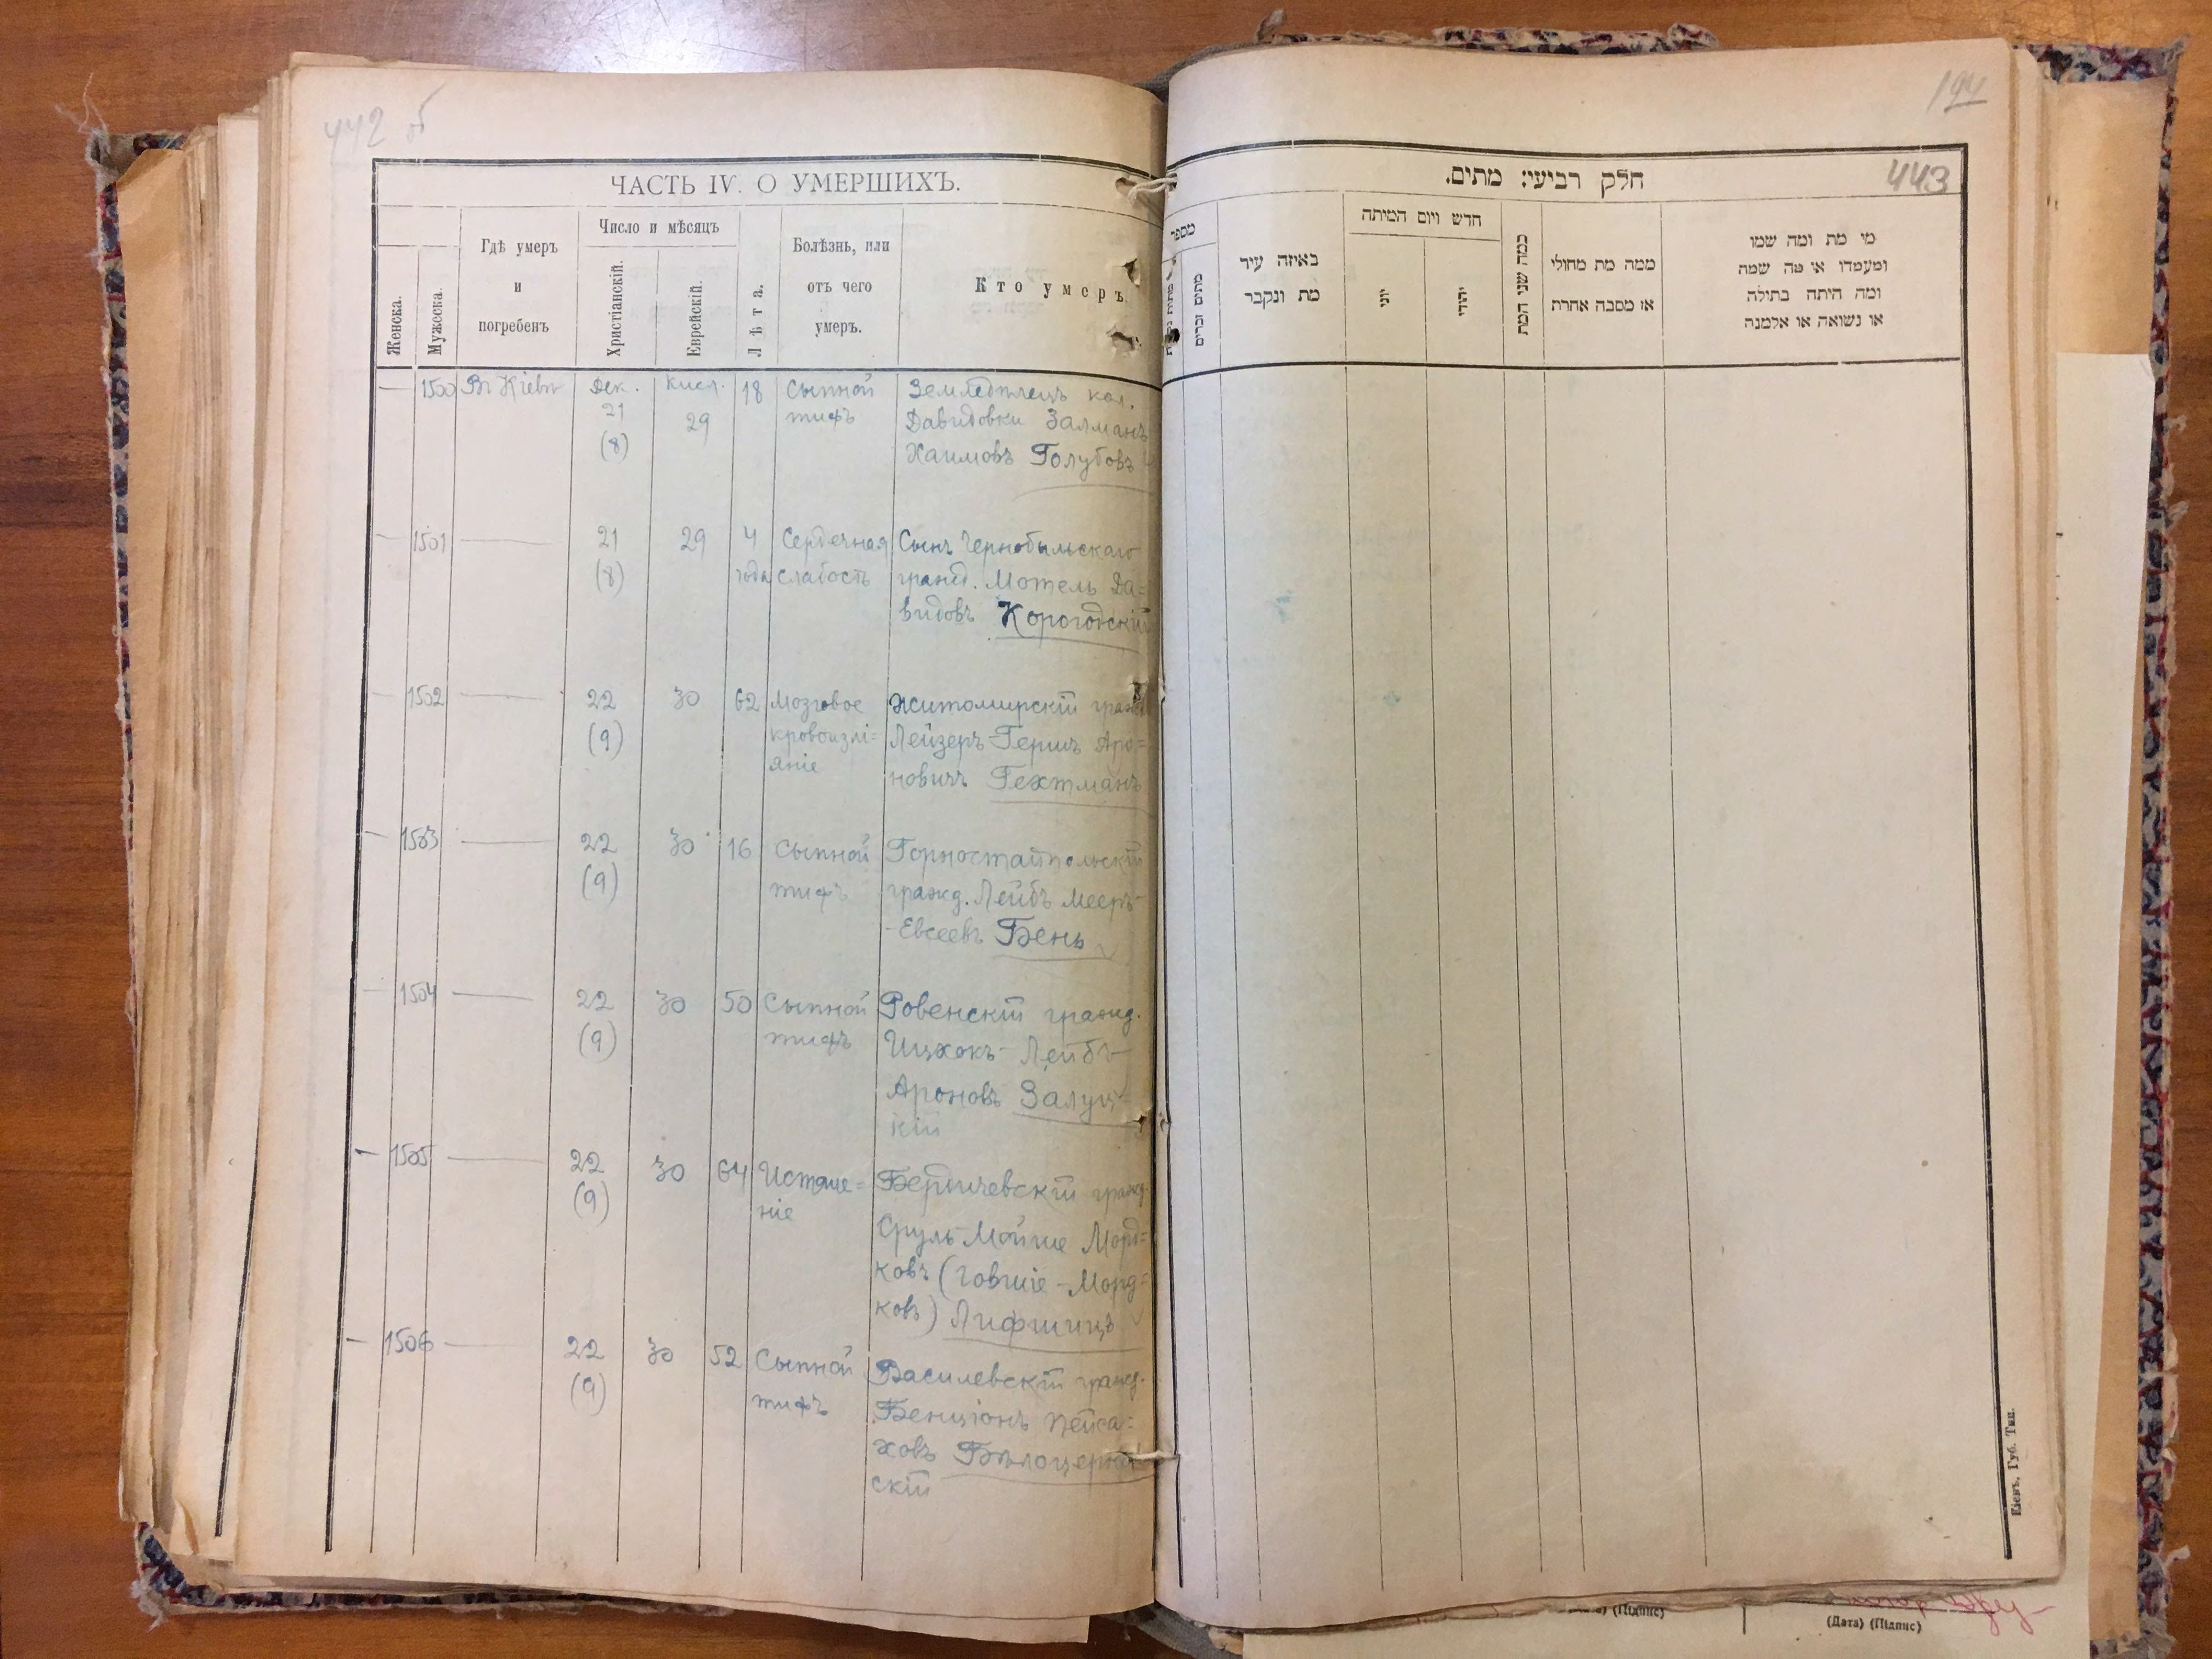 442 об
ЧАСТЬ IV. О УМЕРШИХЪ.
Женска.
Мужеска.
Гдѣ умеръ
и
погребенъ
Число и мѣсяцъ
Христіанскій.
Еврейскій.
Лѣта.
Болѣзнь, или
отъ чего
умеръ.
Кто умеръ
— 1500 Въ Кіевѣ Дек. Кисл. 18 Сыпной Земледѣлецъ кол.
21 29 тифъ Давидовки Залманъ
(8) Хаимовъ Голубовъ
— 1501 — 21 29 4 Сердечная Сынъ Чернобыльскаго
(8) года слабость гражд. Мотель Да=
видовъ Корогодскій
— 1502 — 22 30 62 Мозговое Житомирскій гражд
(9) кровоизлі= Лейзеръ-Гершъ Аро=
яніе новичъ Гехтманъ
— 1503 — 22 30 16 Сыпной Горностайпольскій
(9) тифъ гражд. Лейбъ Мееръ-
-Евсеевъ Бень
— 1504 — 22 30 50 Сыпной Ровенскій гражд.
(9) тифъ Ицхокъ-Лейбъ
Ароновъ Залуц-
кій
— 1505 — 22 30 64 Истоще= Бердичевскій гражд.
(9) ніе Сруль-Мойше Морд=
ковъ (Говшіе-Морд=
ковъ) Лифшицъ
— 1506 — 22 30 52 Сыпной Василевскій гражд.
(9) тифъ Бенціонъ Пейса=
ховъ Бѣлоцерков
скій
194
443
חלק רביעי: מתים.
מספר
מתים זכרים
באיזה עיר
מת ונקבר
חדש ויום המיתה
יוני
יהודי
כמה שני המת
ממה מת מחולי
או מסבה אחרת
מי מת ומה שמו
ומעמדו או מה שמה
ומה היתה בתולה
או נשואה או אלמנה
Кіевъ, Губ. Тип.
(Підпис)
(Дата) (Підпис)